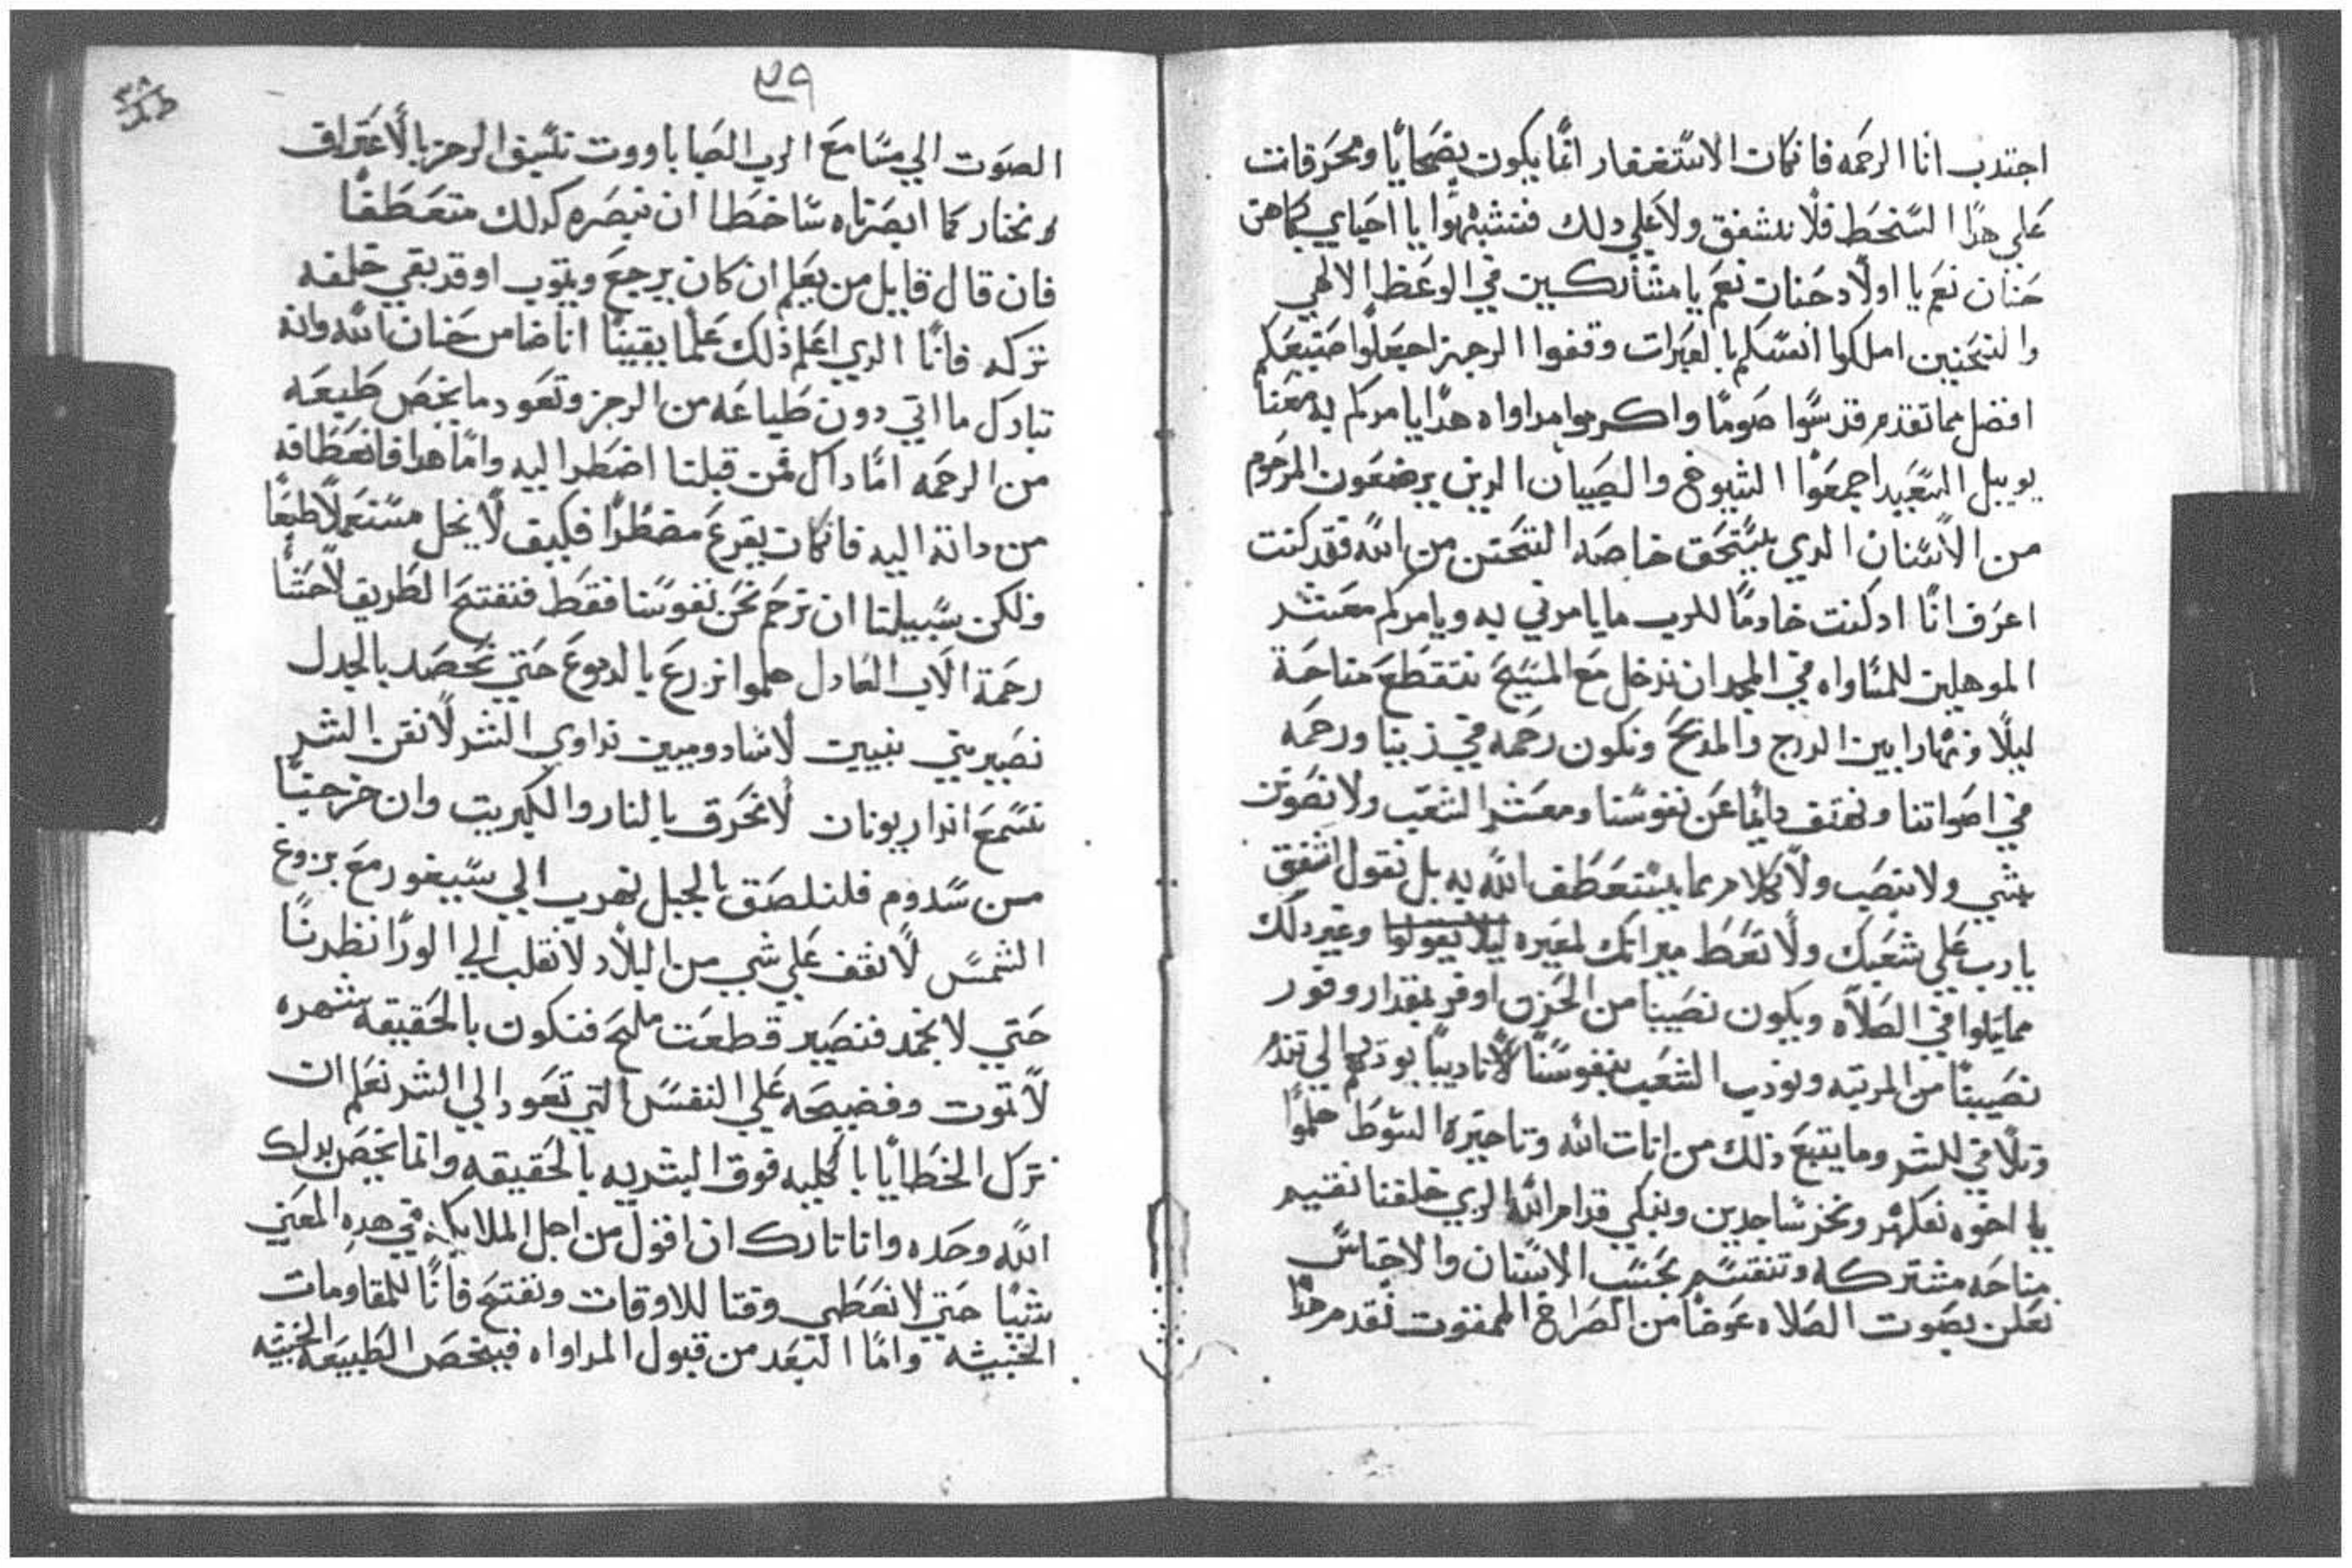 اجتدب انا الرحمه فان كان الاستغفار انما يكون بضحايا ومحرقات
علي هدا السخط فلا نشفق ولا علي دلك فتشبهوا يا احباي بكاهن
حنان نعم يا اولاد حنان نعم يا مشاركين في الوعظ الالهي
والتحنين املكوا انفسكم بالعبرات وقفوا الرجز اجعلوا صنيعكم
افضل مما تقدم قدسوا صوما واكرموا مداواه هدا يا مركم به معنا
يوييل السعيد اجمعوا الشيوخ والصبيان الدين يرضعون المرحوم
من الاسنان الدي يستحق خاصه التحنن من الله فقد كنت
اعرف انا اد كنت خادما للرب ما يامرني به ويامركم معشر
الموهلين للمساواه في المجد ان ندخل مع المسيح نتقطع مناحة
ليلا ونهارا بين الدرج والمدبح ونكون رحمه في زينا ورحمه
في اصواتنا ونهتف دايما عن نفوسنا ومعشر الشعب ولا نضوتن
بشي ولا بتصب ولا كلام مما يستعطف الله به بل نقول اشفق
يا رب علي شعبك ولا تعط ميراتك لمعيره ليلا يقولوا وغير دلك
مما يتلوا في الصلاه ويكون نصيبنا من الحزن اوفر بمقدار وفور
نصيبنا من المرتبه ونودب الشعب بنفوسنا
وتلافي للشر وما يتبع ذلك من انات الله وتاخيره السوط هلموا
يا اخوه نعكهر ونخر ساجدين ونبكي قدام الله الدي خلقنا نقيم
مناحه مشتركه وتنقسم بحسب الاسنان والاجناس
نعلن بصوت الصلاه عوضا من الصراخ الممقوت نقدم هدا
٣٩
٣٨
الصوت الي مسامع الرب الصاباووت نسبق الرجز بالاعتراف
ونختار كما ابصرناه ساخطا ان نبصره كدلك متعطفا
فان قال قايل من يعلم ان كان يرجع ويتوب او قد بقي خلفه
تركه فانا الدي اعلم ذلك علما يقينا انا ضامن حنان الله وانه
تارك ما اتي دون طباعه من الرجز وتعود ما يخص طبيعه
من الرحمه اما داك فمن قبلنا اضطر اليه واما هدا فانعطافه
من داته اليه فان كان يقرع مضطرا فكيف لا يخل مستعملا طبعا
ولكن سبيلنا ان نرحم نحن نفوسنا فقط فنفتح الطريق لاحشا
رحمة الاب العادل هلموا نزرع بالدموع حتي نحصد بالجدل
نصير بني نينيت لا سادوميين نداوي الشر لا نفن الشر
نسمع اندار يونان لا نحرق بالنار والكبريت وان خرجنا
من سدوم فلنلصق بالجبل نهرب الي سيغور مع بزوغ
الشمس لا نقف علي شي من البلاد لا نقلب الي الورا نظرنا
حتي لا نجمد فنصير قطعت ملح فنكون بالحقيقه شهره
لا تموت وفضيحه علي النفس التي تعود الي الشر نعلم ان
ترك الخطايا بالكليه فوق البشريه بالحقيقه وانما نخص بدلك
الله وحده وانا تارك ان اقول من اجل الملايكه في هده المعني
شيا حتي لا نعطي وقتا للاوقات ونفتح فانا للمقاومات
الخبيثه واما البعد من قبول المداواه فيخص الطبيعه الخبيثه